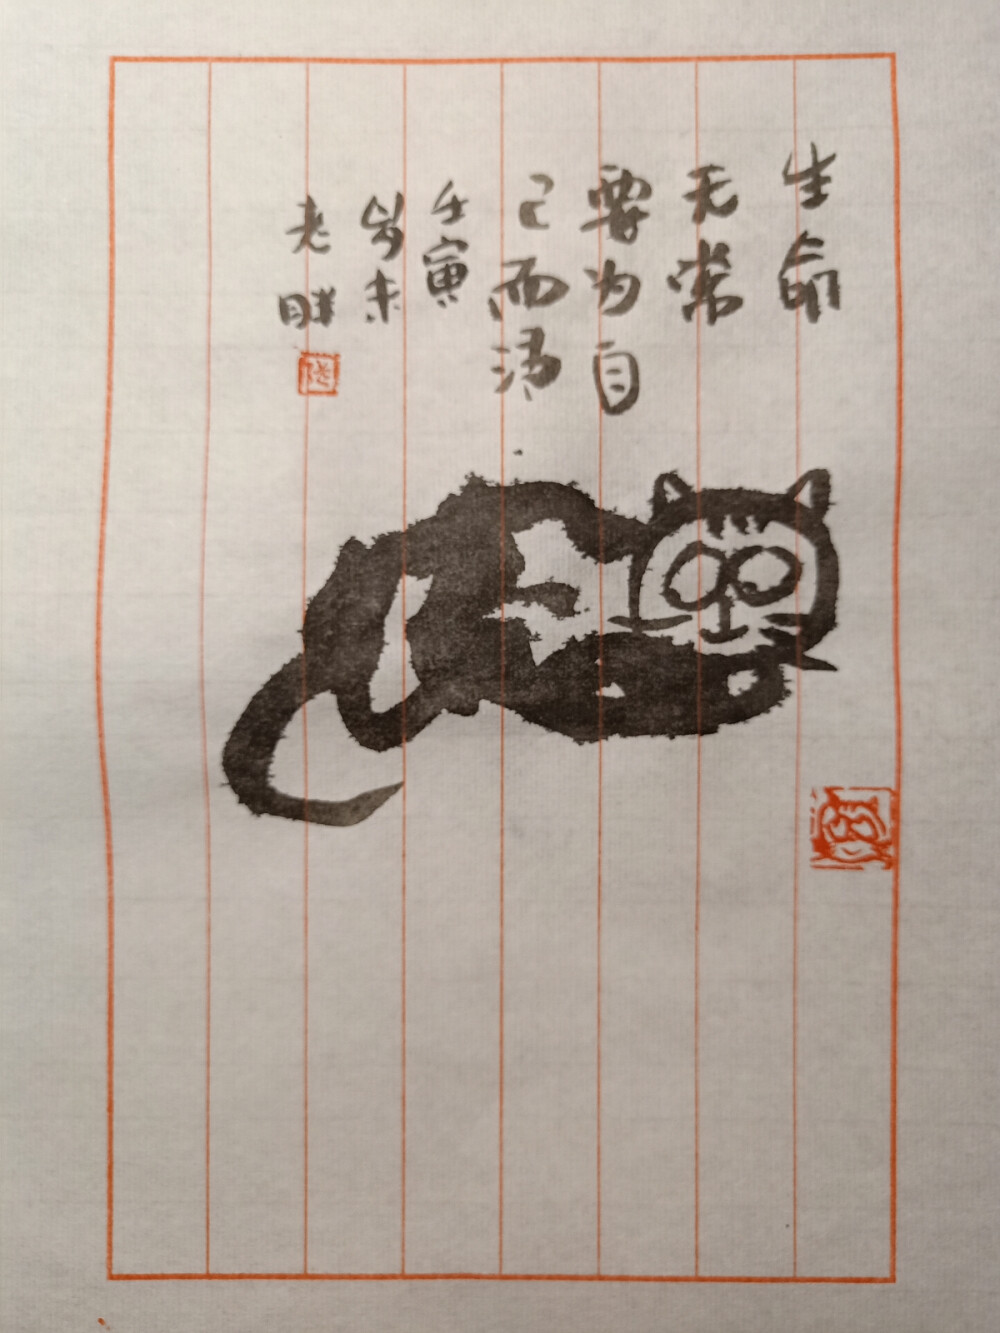 生命
无常
要为自
己而活
壬寅
岁末
老胖